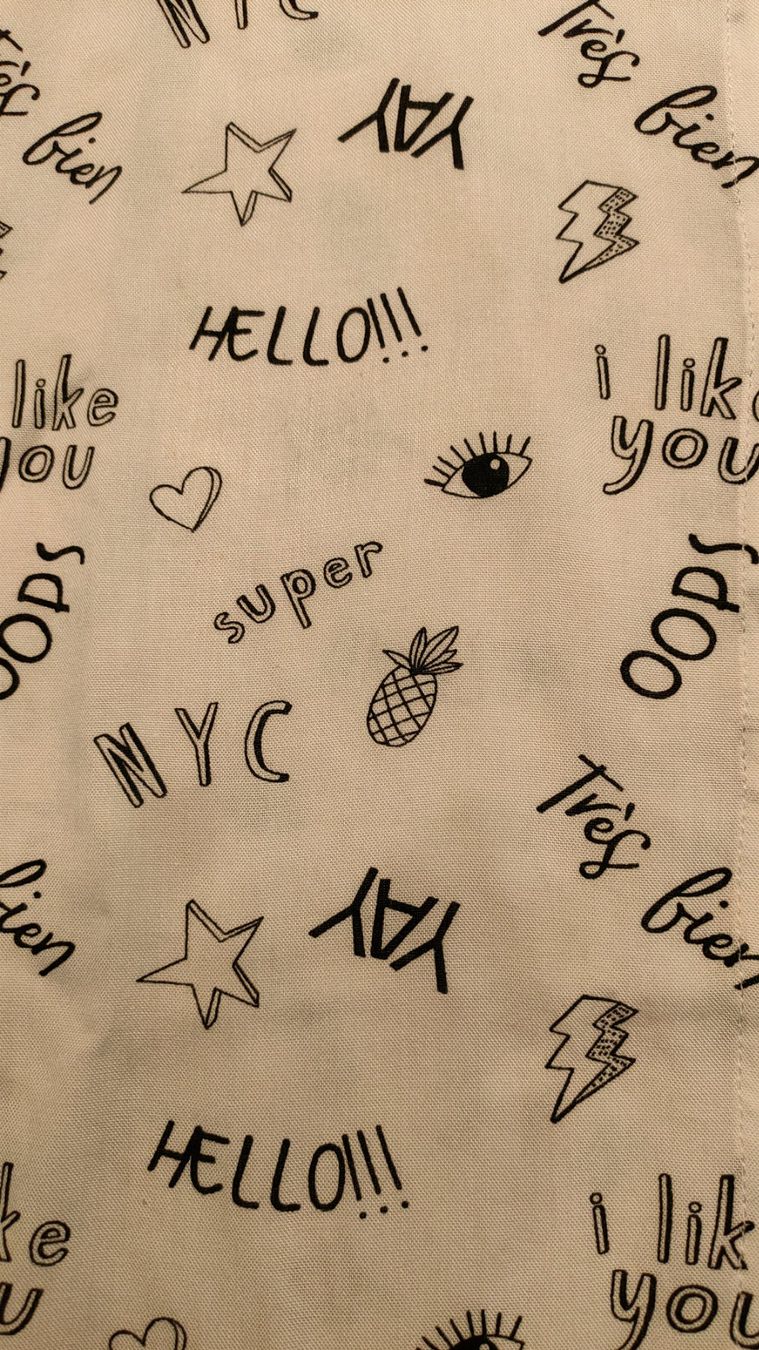 NYC
Très bien
Très bien
YAY
HELLO!!!
like
you
i like
you
super
OOPS
OOPS
NYC
Très bien
bien
YAY
HELLO!!!
i lik
you